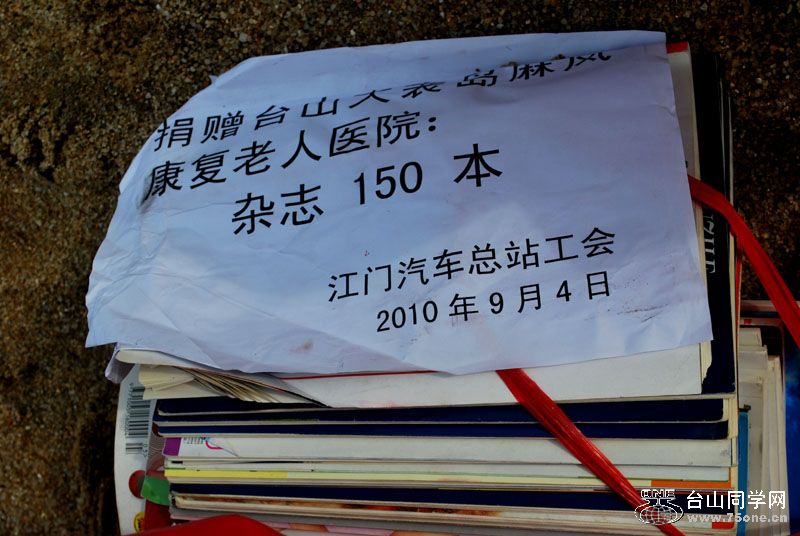 捐赠台山大襄岛麻风
康复老人医院：
杂志 150 本
江门汽车总站工会
2010 年 9 月 4 日
台山同学网
www.75one.cn